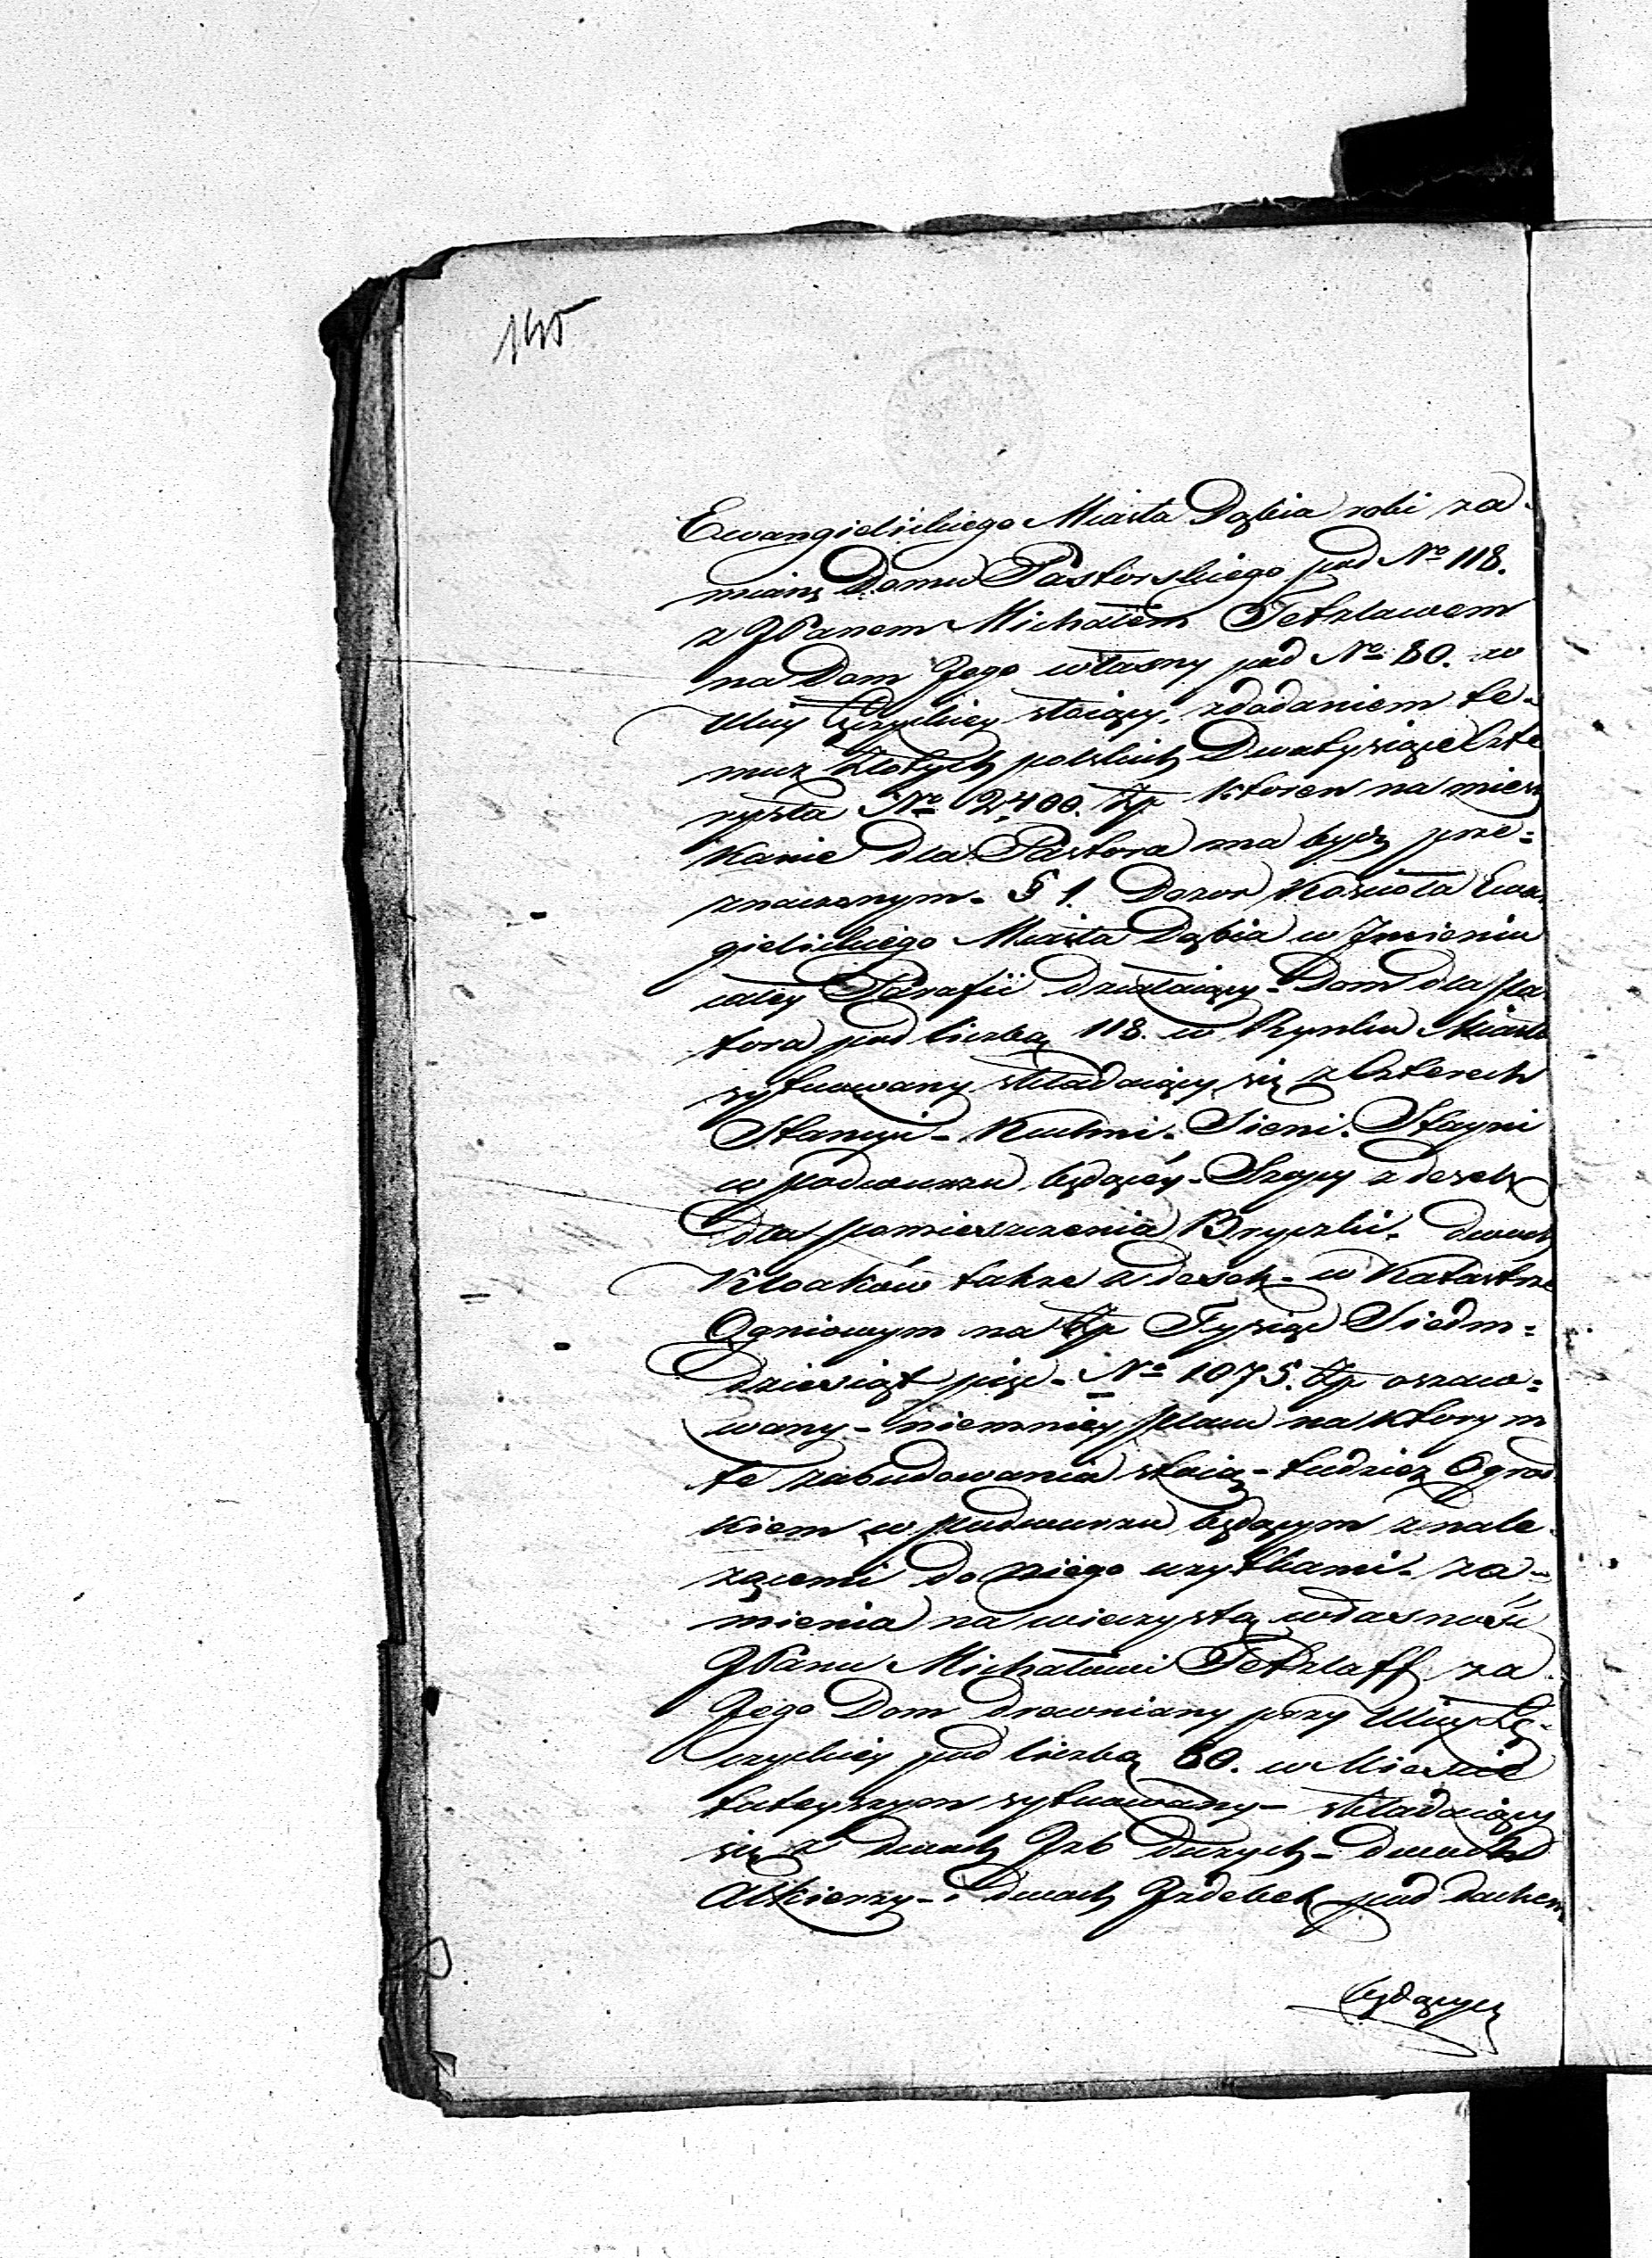 Ewangielickiego Miasta Dąbia robi za-
mianę Domu Pastorskiego pod No 118.
z JPanem Michałem Tetzlawem
na Dom Jego własny pod No 80. w
Ulicy Łęczyckiey stoiący, zdodaniem te-
muz Złotych polskich Dwatysiące Czte
rysta No 2,400. Zp ktoren na miesz
kanie dla Pastora ma bydz prze=
znaczonym. § 1. Dozor Kościoła Ewan
gielickiego Miasta Dąbia w Jmieniu
całey Parafii działaiący. Dom dla Pa
tora pod liczbą 118. w Rynku Miasta
sytuowany składaiący się z Czterech
Stancyi - Kuchni. Sieni. Stayni
w podwurzu będącéy. Szopy z desek
dla pomieszczenia Bryczki. dwuch
Kloaków także z desek - w Katastrze
Ogniowym na Zp Tysiąc Siedm=
dziesiąt pięc. No 1075. Zp oszaco=
wany - niemniey placu na ktorym
te zabudowania stoią - tudziez Ogrod
kiem w podwurzu będącym z nale-
zącemi do niego uzytkami. za-
mienia na wieczystą własność
JPanu Michałowi Tetzlaff za
Jego Dom drewniany przy Ulicy Łę-
czyckiey pod liczbą 80. w Miescie
tuteyszym sytuowany - składaiący
się z dwuch Jzb duzych - dwuch
Alkierzy - i dwuch Jzdebek pod dachem
będących